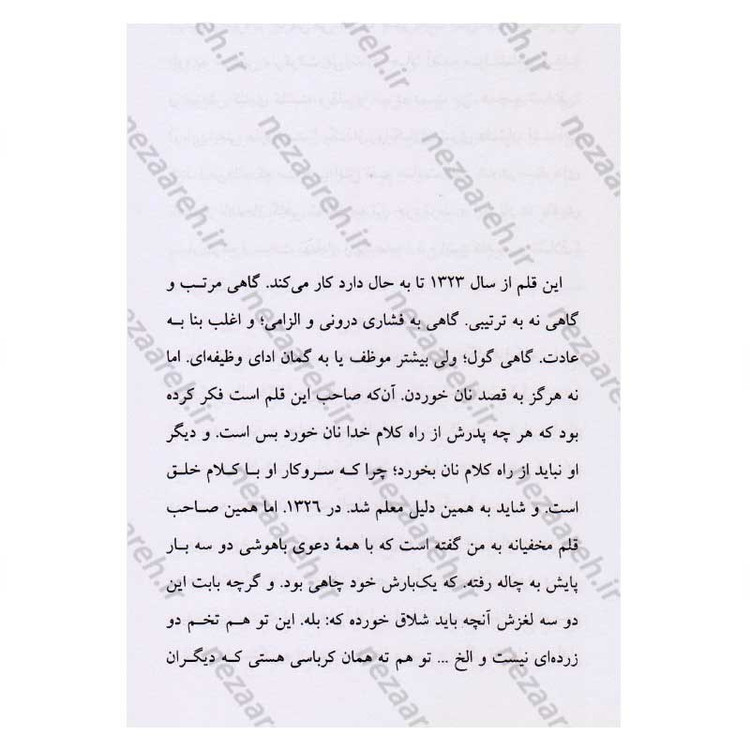 این قلم از سال ۱۳۲۳ تا به حال دارد کار می‌کند. گاهی مرتب و
گاهی نه به ترتیبی. گاهی به فشاری درونی و الزامی؛ و اغلب بنا به
عادت. گاهی گول؛ ولی بیشتر موظف یا به گمان ادای وظیفه‌ای. اما
نه هرگز به قصد نان خوردن. آن‌که صاحب این قلم است فکر کرده
بود که هر چه پدرش از راه کلام خدا نان خورد بس است. و دیگر
او نباید از راه کلام نان بخورد؛ چرا که سروکار او با کلام خلق
است. و شاید به همین دلیل معلم شد. در ۱۳۲۶. اما همین صاحب
قلم مخفیانه به من گفته است که با همهٔ دعوی باهوشی دو سه بار
پایش به چاله رفته. که یک‌بارش خود چاهی بود. و گرچه بابت این
دو سه لغزش آنچه باید شلاق خورده که: بله. این تو هم تخم دو
زرده‌ای نیست و الخ ... تو هم ته همان کرباسی هستی که دیگران
nezaareh.ir